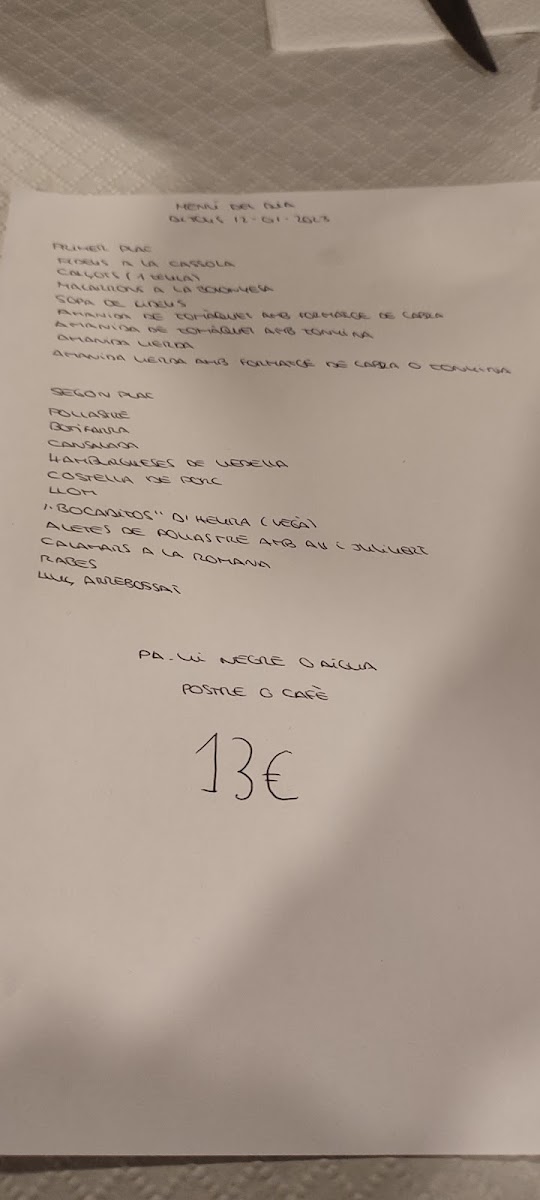 MENÚ DEL DIA
DIJOUS 12-01-2023
PRIMER PLAT
FIDEUS A LA CASSOLA
CALÇOTS (1 TEULA)
MACARRONS A LA BOLONYESA
SOPA DE FIDEUS
AMANIDA DE TOMÀQUET AMB FORMATGE DE CABRA
AMANIDA DE TOMÀQUET AMB TONYINA
AMANIDA VERDA
AMANIDA VERDA AMB FORMATGE DE CABRA O TONYINA
SEGON PLAT
POLLASTRE
BOTIFARRA
CANSALADA
HAMBURGUESES DE VEDELLA
COSTELLA DE PORC
LLOM
"BOCADITOS" D'HEURA (VEGÀ)
ALETES DE POLLASTRE AMB ALL I JULIVERT
CALAMARS A LA ROMANA
RABES
LLUÇ ARREBOSSAT
PA. VI NEGRE O AIGUA
POSTRE O CAFÈ
13€